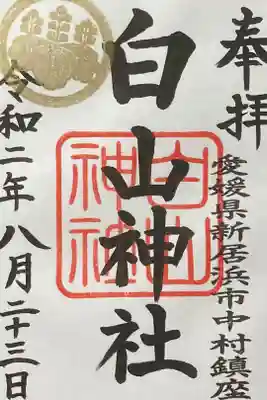 奉拝
愛媛県新居浜市中村鎮座
白山神社
白山
神社
令和二年八月二十三日